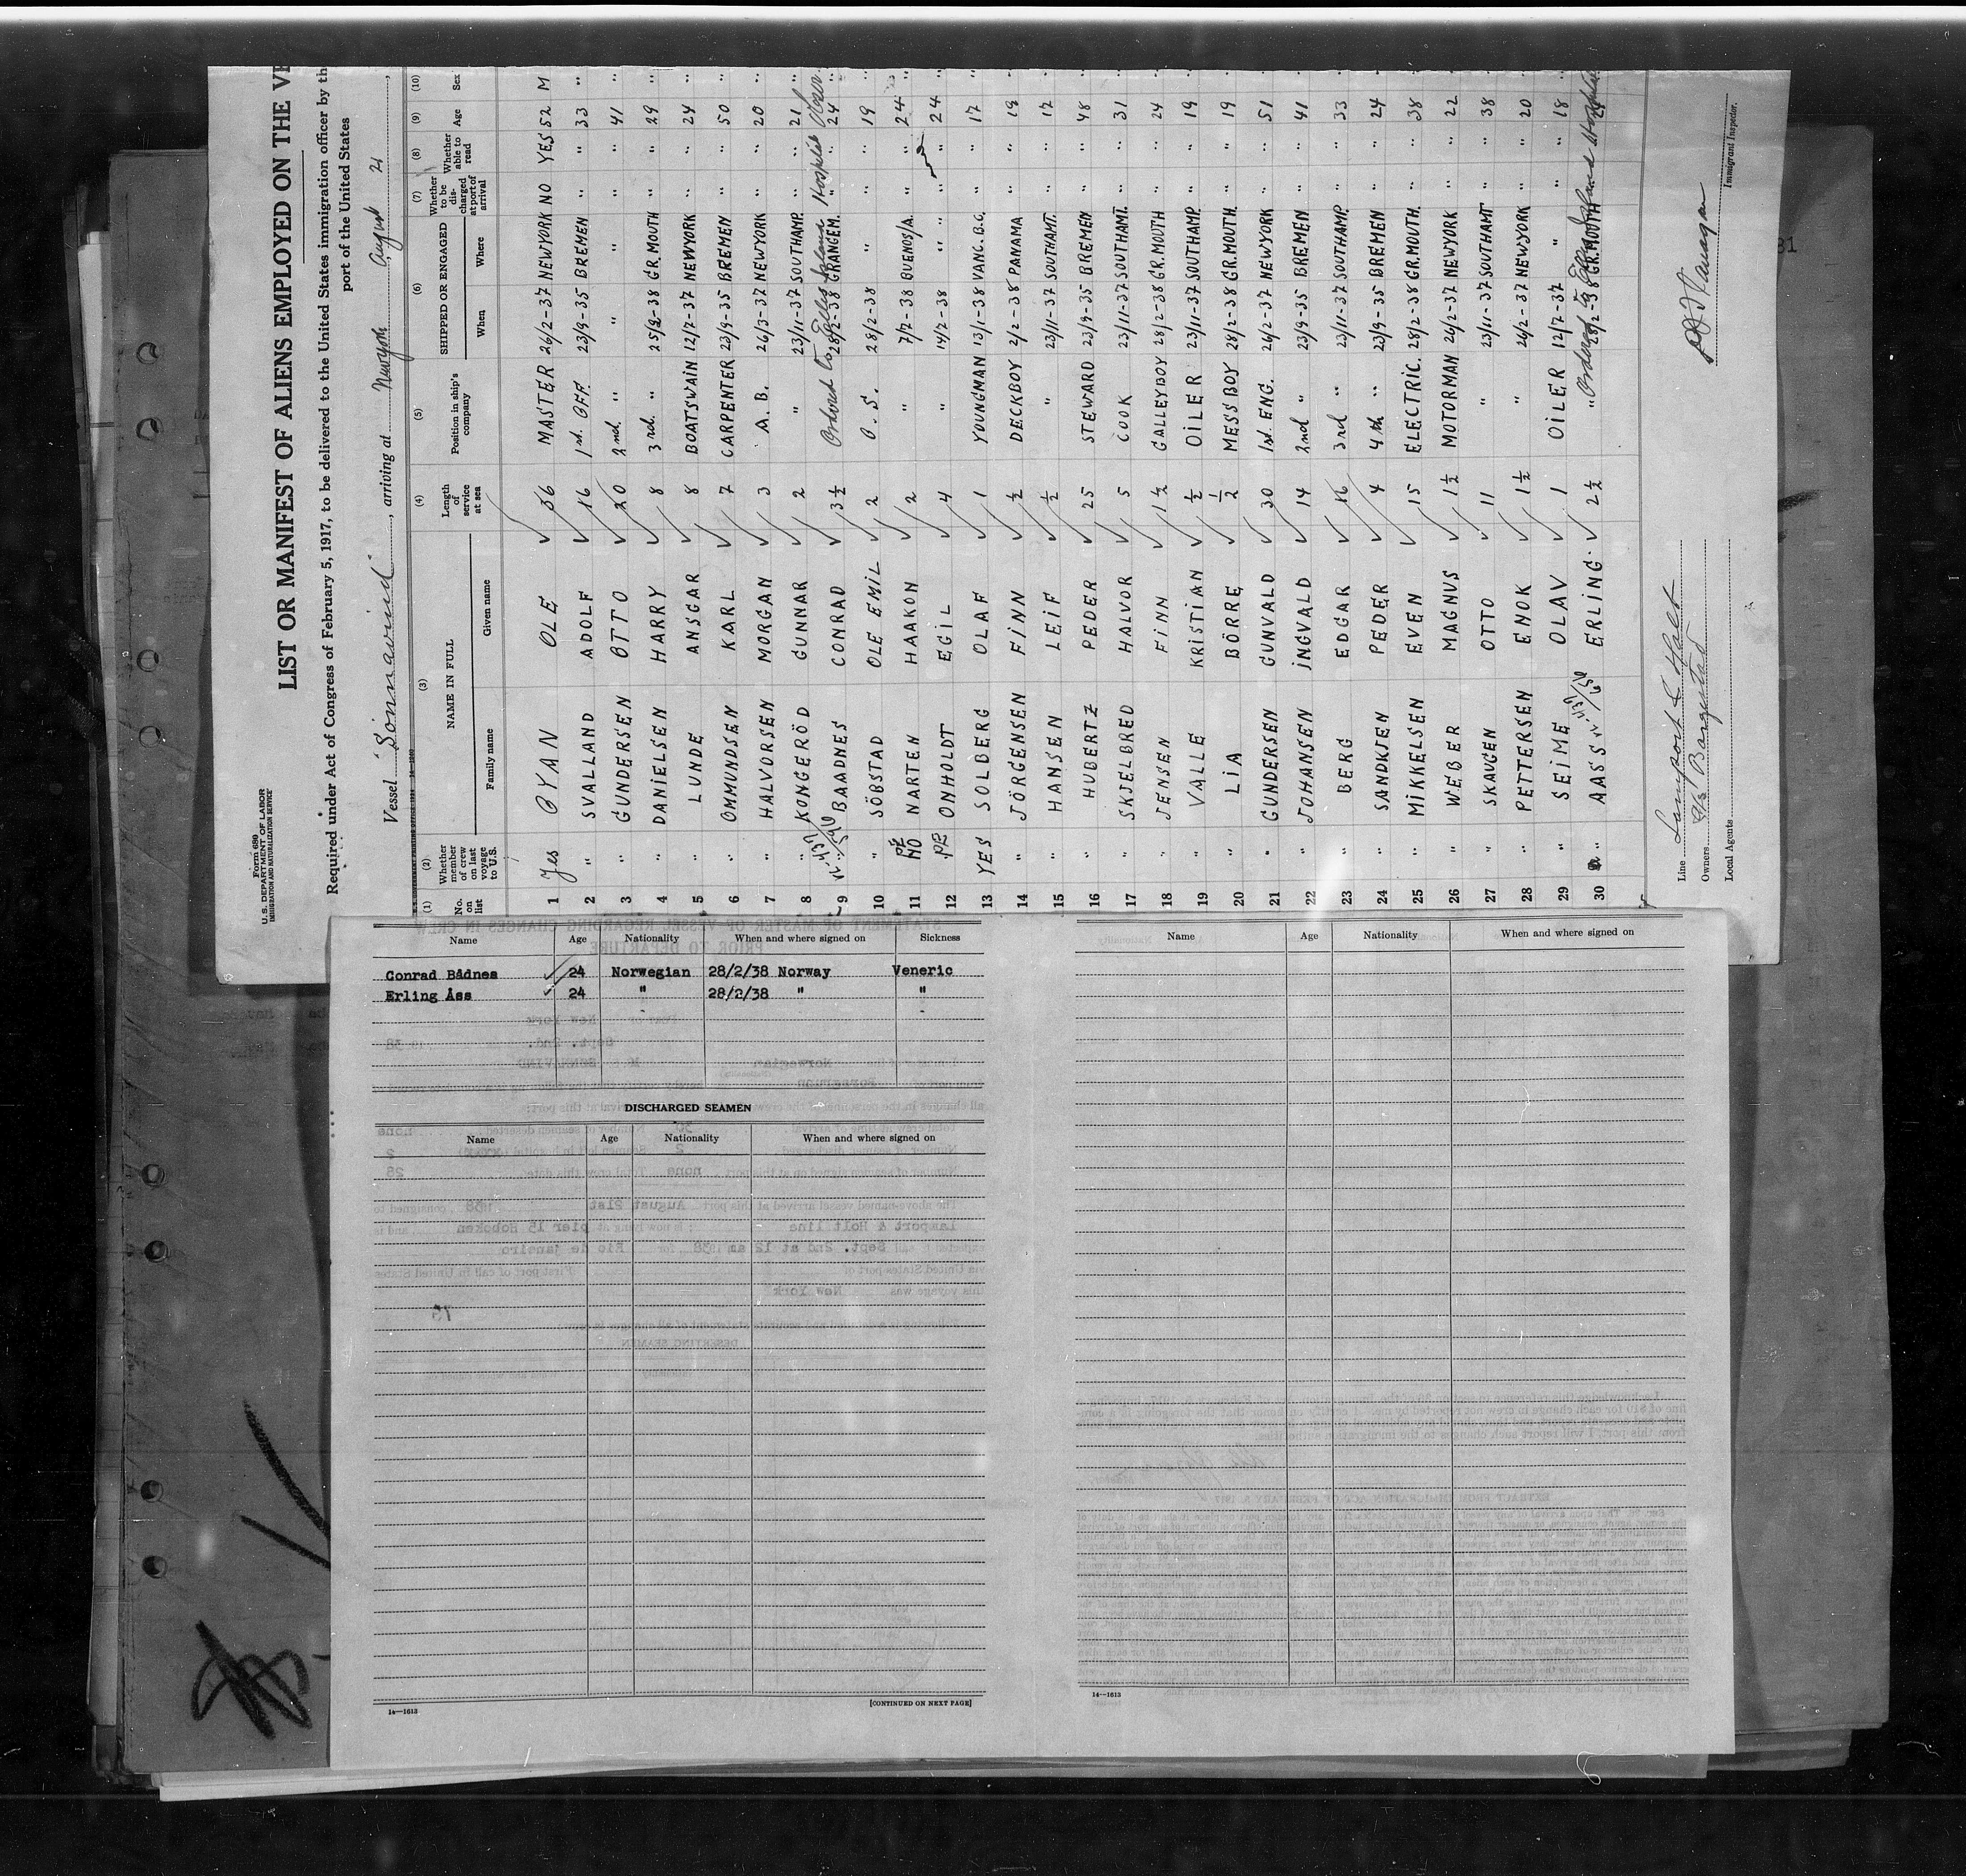 Form 680
U.S. DEPARTMENT OF LABOR
IMMIGRATION AND NATURALIZATION SERVICE
LIST OR MANIFEST OF ALIENS EMPLOYED ON THE VE
Required under Act of Congress of February 5, 1917, to be delivered to the United States immigration officer by th
port of the United States
Vessel "Sönnavind", arriving at Newyork August 21,
(1) (2) (3) (4) (5) (6) (7) (8) (9) (10)
No. on list Whether member of crew on last voyage to U.S. NAME IN FULL Family name Given name Length of service at sea Position in ship's company SHIPPED OR ENGAGED When Where Whether to be discharged at port of arrival Whether able to read Age Sex
1 Yes ÖYAN OLE 36 MASTER 26/2-37 NEWYORK NO YES 52 M
2 " SVALLAND ADOLF 16 1st. OFF. 23/9-35 BREMEN " " 33 "
3 " GUNDERSEN OTTO 20 2nd. " " " " " 41 "
4 " DANIELSEN HARRY 8 3rd. " 25/2-38 GR.MOUTH " " 29 "
5 " LUNDE ANSGAR 8 BOATSWAIN 12/7-37 NEWYORK " " 24 "
6 " OMMUNDSEN KARL 7 CARPENTER 23/9-35 BREMEN " " 50 "
7 " HALVORSEN MORGAN 3 A.B. 26/3-37 NEWYORK " " 20 "
8 " KONGERÖD GUNNAR 2 " 23/11-37 SOUTHAMP. " " 21 "
Ordered to Ellis Island Hospital
9 " BAADNES CONRAD 3½ 28/2-38 GRANGEM. " " 24 "
10 " SÖBSTAD OLE EMIL 2 O.S. 28/2-38 " " " 19
11 NO NARTEN HAAKON 2 " 7/2-38 BUENOS/A. " " 24 "
12 ONHOLDT EGIL 4 " 14/2-38 " " " " 24 "
13 YES SOLBERG OLAF 1 YOUNGMAN 13/1-38 VANC.B.C. " " 17 "
14 " JÖRGENSEN FINN ½ DECKBOY 2/2-38 PANAMA " " 19 "
15 " HANSEN LEIF ½ " 23/11-37 SOUTHAMT. " " 17 "
16 " HUBERTZ PEDER 25 STEWARD 23/9-35 BREMEN " " 48 "
17 " SKJELBRED HALVOR 5 COOK 23/11-37 SOUTHAMT. " " 31 "
18 " JENSEN FINN 1½ GALLEYBOY 28/2-38 GR.MOUTH " " 24 "
19 " VALLE KRISTIAN ½ OILER 23/11-37 SOUTHAMP. " " 19 "
20 " LIA BÖRRE ½ MESSBOY 28/2-38 GR.MOUTH. " " 19 "
21 " GUNDERSEN GUNVALD 30 1st. ENG. 26/2-37 NEWYORK " " 51 "
22 " JOHANSEN INGVALD 14 2nd " 23/9-35 BREMEN " " 41 "
23 " BERG EDGAR 16 3rd " 23/11-37 SOUTHAMP. " " 33 "
24 " SANDKJEN PEDER 4 4th " 23/9-35 BREMEN " " 24 "
25 " MIKKELSEN EVEN 15 ELECTRIC. 28/2-38 GR.MOUTH. " " 38 "
26 " WEBER MAGNUS 1½ MOTORMAN 26/2-37 NEWYORK " " 22 "
27 " SKAUGEN OTTO 11 " 23/11-37 SOUTHAMT " " 38 "
28 " PETTERSEN ENOK 1½ " 26/2-37 NEWYORK " " 20 "
29 " SEIME OLAV 1 OILER 12/7-37 " " " 18 "
Ordered to Ellis Island Hospital
30 " AASS ERLING. 2½ " 28/2-38 GR.MOUTH 24
Line Lamport & Holt
Owners
Local Agents
Immigrant Inspector.
Name Age Nationality When and where signed on Sickness
Conrad Bådnes 24 Norwegian 28/2/38 Norway Veneric
Erling Åss 24 " 28/2/38 " "
DISCHARGED SEAMEN
Name Age Nationality When and where signed on
14—1613
[CONTINUED ON NEXT PAGE]
Name Age Nationality When and where signed on
14—1613